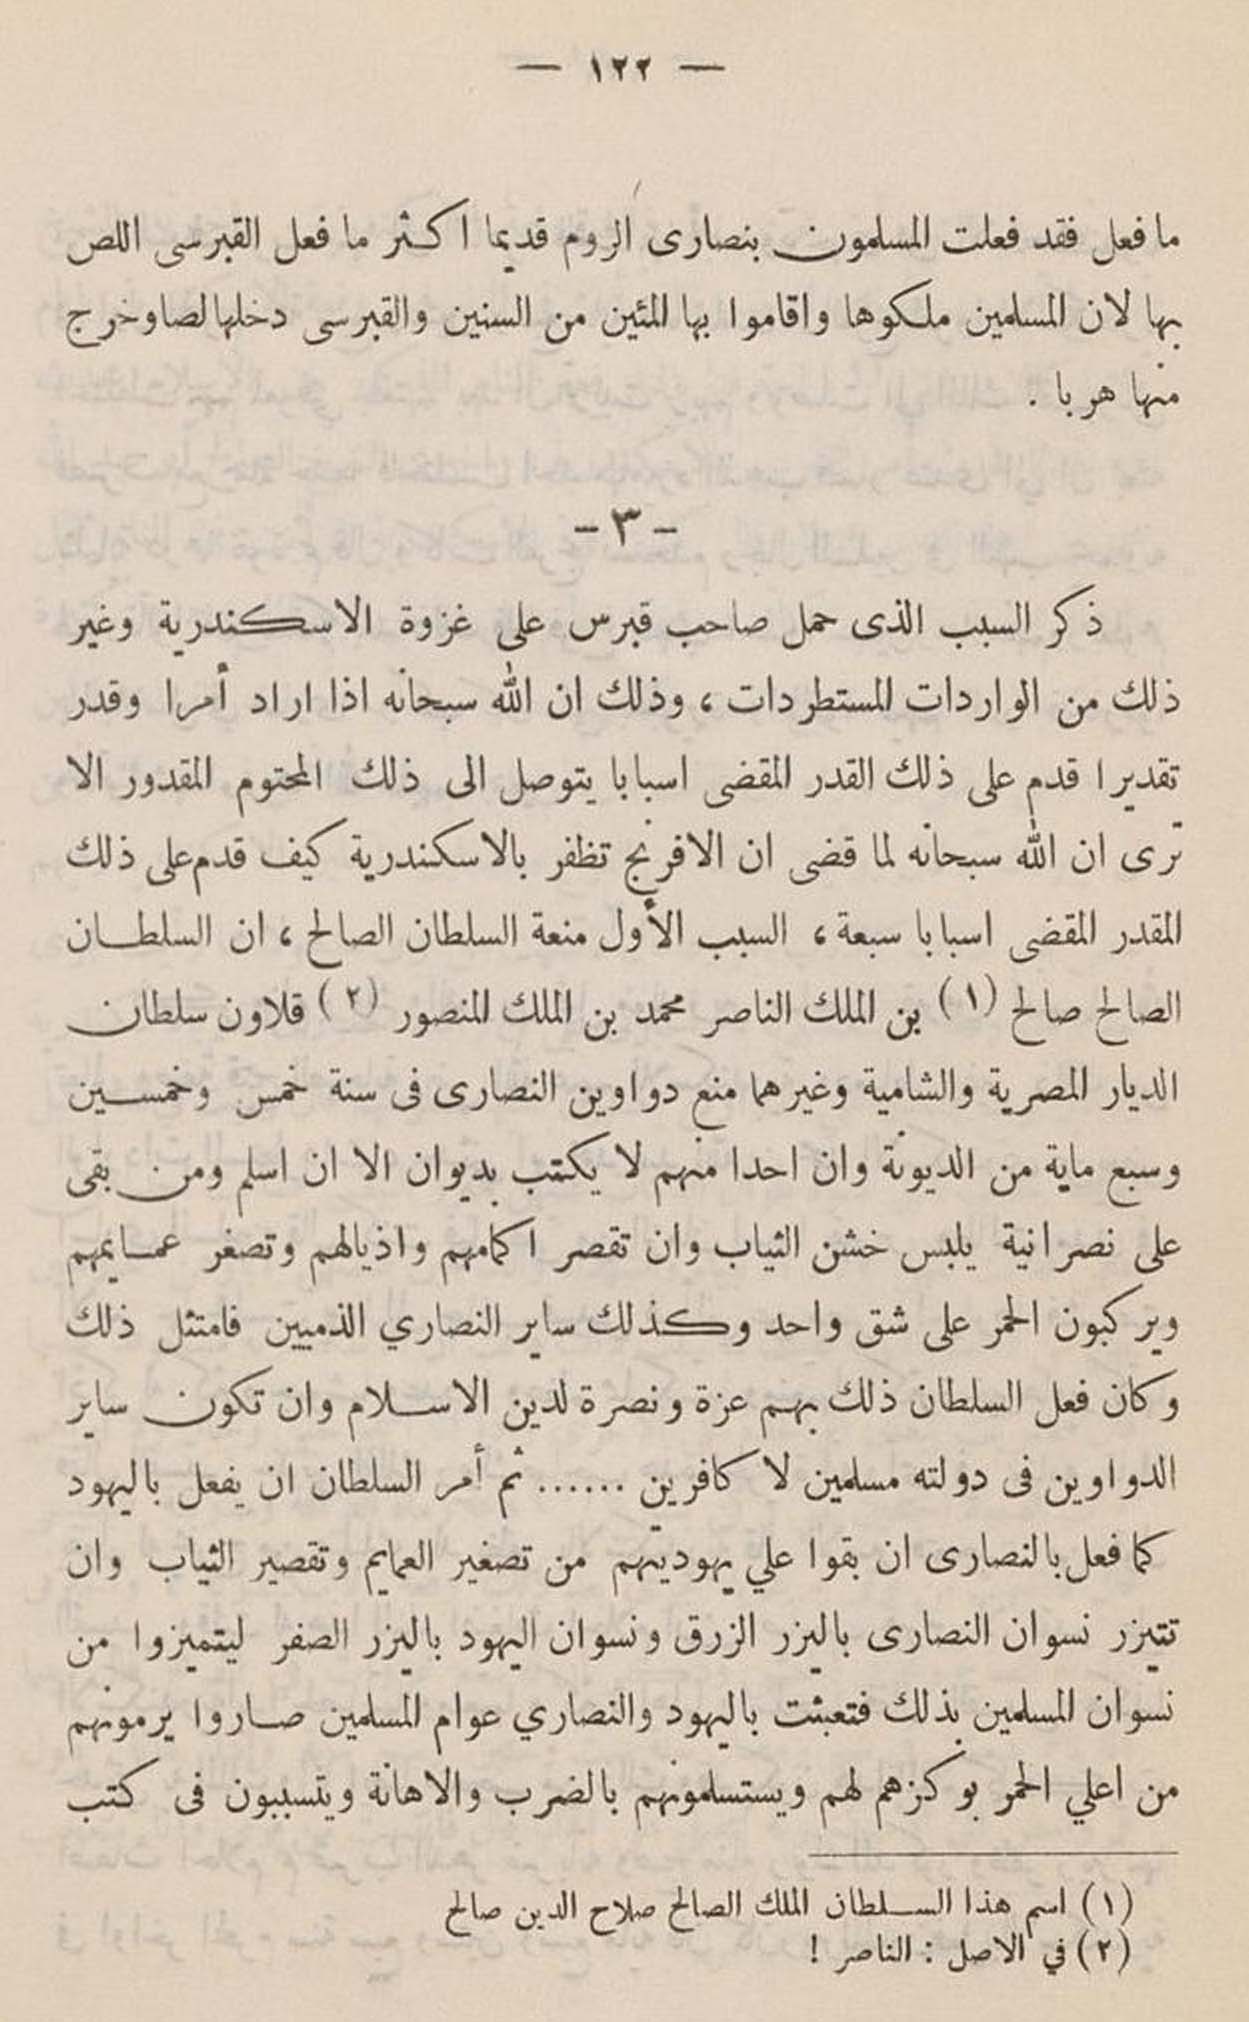 — ١٢٢ —
ما فعل فقد فعلت المسلمون بنصارى الروم قديما اكثر ما فعل القبرسى اللص
بها لان المسلمين ملكوها واقاموا بها المئين من السنين والقبرسى دخلها لصا وخرج
منها هربا .
- ٣ -
ذكر السبب الذى حمل صاحب قبرس على غزوة الاسكندرية وغير
ذلك من الواردات المستطردات ، وذلك ان الله سبحانه اذا اراد أمرا وقدر
تقديرا قدم على ذلك القدر المقضى اسبابا يتوصل الى ذلك المحتوم المقدور الا
ترى ان الله سبحانه لما قضى ان الافرنج تظفر بالاسكندرية كيف قدم على ذلك
المقدر المقضى اسبابا سبعة ، السبب الأول منعة السلطان الصالح ، ان السلطان
الصالح صالح (١) بن الملك الناصر محمد بن الملك المنصور (٢) قلاون سلطان
الديار المصرية والشامية وغيرهما منع دواوين النصارى فى سنة خمس وخمسين
وسبع ماية من الديونة وان احدا منهم لا يكتب بديوان الا ان اسلم ومن بقى
على نصرانية يلبس خشن الثياب وان تقصر اكمامهم واذيالهم وتصغر عمايمهم
ويركبون الحمر على شق واحد وكذلك ساير النصاري الذميين فامتثل ذلك
وكان فعل السلطان ذلك بهم عزة ونصرة لدين الاسلام وان تكون ساير
الدواوين فى دولته مسلمين لا كافرين ...... ثم أمر السلطان ان يفعل باليهود
كما فعل بالنصارى ان بقوا علي يهوديتهم من تصغير العمايم وتقصير الثياب وان
تتيزر نسوان النصارى باليزر الزرق ونسوان اليهود باليزر الصفر ليتميزوا من
نسوان المسلمين بذلك فتعبثت باليهود والنصاري عوام المسلمين صاروا يرمونهم
من اعلي الحمر بوكزهم لهم ويستسلمونهم بالضرب والاهانة ويتسببون فى كتب
(١) اسم هذا السلطان الملك الصالح صلاح الدين صالح
(٢) في الاصل : الناصر !